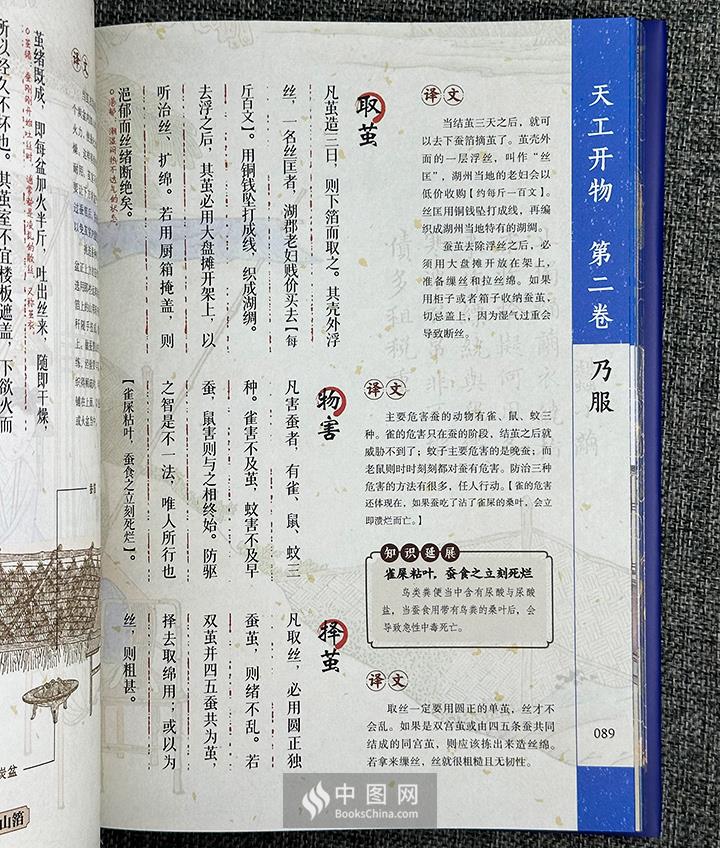 天工开物 第二卷
乃服
089
取茧
凡茧造三日，则下箔而取之。其壳外浮
丝，一名丝匡者，湖郡老妇贱价买去【每
斤百文】。用铜钱坠打成线，织成湖绸。
去浮之后，其茧必用大盘摊开架上，以
听治丝、扩绵。若用厨箱掩盖，则
浥郁而丝绪断绝矣。
译文
当结茧三天之后，就可
以去下蚕箔摘茧了。茧壳外
面的一层浮丝，叫作“丝
匡”，湖州当地的老妇会以
低价收购【约每斤一百文】。
丝匡用铜钱坠打成线，再编
织成湖州当地特有的湖绸。
蚕茧去除浮丝之后，必
须用大盘摊开放在架上，
准备缫丝和拉丝绵。如果
用柜子或者箱子收纳蚕茧，
切忌盖上，因为湿气过重会
导致断丝。
物害
凡害蚕者，有雀、鼠、蚊三
种。雀害不及茧，蚊害不及早
蚕，鼠害则与之相终始。防驱
之智是不一法，唯人所行也
【雀屎粘叶，蚕食之立刻死烂】。
译文
主要危害蚕的动物有雀、鼠、蚊三
种。雀的危害只在蚕的阶段，结茧之后就
威胁不到了；蚊子主要危害的是晚蚕；而
老鼠则时时刻刻都对蚕有危害。防治三种
危害的方法有很多，任人行动。【雀的危害
还体现在，如果蚕吃了沾了雀屎的桑叶，会立
即溃烂而亡。】
知识延展
雀屎粘叶，蚕食之立刻死烂
鸟类粪便当中含有尿酸与尿酸
盐，当蚕食用带有鸟粪的桑叶后，会
导致急性中毒死亡。
择茧
凡取丝，必用圆正独
蚕茧，则绪不乱。若
双茧并四五蚕共为茧，
择去取绵用；或以为
丝，则粗甚。
译文
取丝一定要用圆正的单茧，丝才不
会乱。如果是双宫茧或由四五条蚕共同
结成的同宫茧，则应该拣出来造丝绵。
若拿来缫丝，丝就很粗糙且无韧性。
茧绪既成，即每盆加火半斤，吐出丝来，随即干燥，
所以经久不坏也。其茧室不宜楼板遮盖，下欲火而
译文
炭盆
山箔
中图网
BooksChina.com